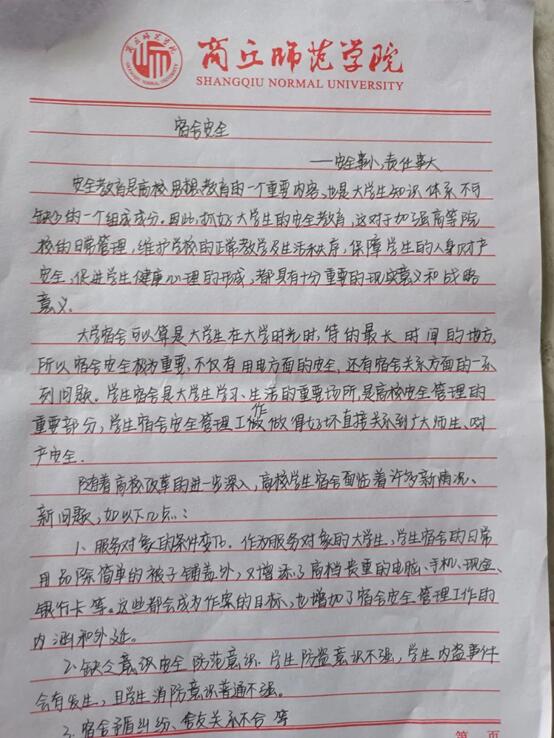 商丘师范学院
SHANGQIU NORMAL UNIVERSITY
宿舍安全
——安全事小,责任事大
安全教育是高校思想教育的一个重要内容,也是大学生知识体系不可
缺少的一个组成成分。因此,抓好大学生的安全教育,这对于加强高等院
校的日常管理,维护学校的正常教学及生活秩序,保障学生的人身财产
安全,促进学生健康心理的形成,都具有十分重要的现实意义和战略
意义。
大学宿舍可以算是大学生在大学时光时,待的最长时间的地方,
所以宿舍安全极为重要,不仅有用电方面的安全,还有宿舍关系方面的一系
列问题。学生宿舍是大学生学习、生活的重要场所,是高校安全管理的
重要部分,学生宿舍安全管理工作做得好坏直接关系到广大师生、财
产安全.
随着高校改革的进一步深入,高校学生宿舍面临着许多新情况、
新问题,如以下几点:
1、服务对象的条件变化.作为服务对象的大学生,学生宿舍的日常
用品除简单的被子铺盖外,又增添了高档贵重的电脑、手机、现金、
银行卡等。这些都会成为作案的目标,也增加了宿舍安全管理工作的
内涵和外延。
2.缺乏意识安全防范意识.学生防盗意识不强,学生内盗事件
会有发生,且学生消防意识普遍不强。
3.宿舍矛盾纠纷、舍友关系不合等
第 页